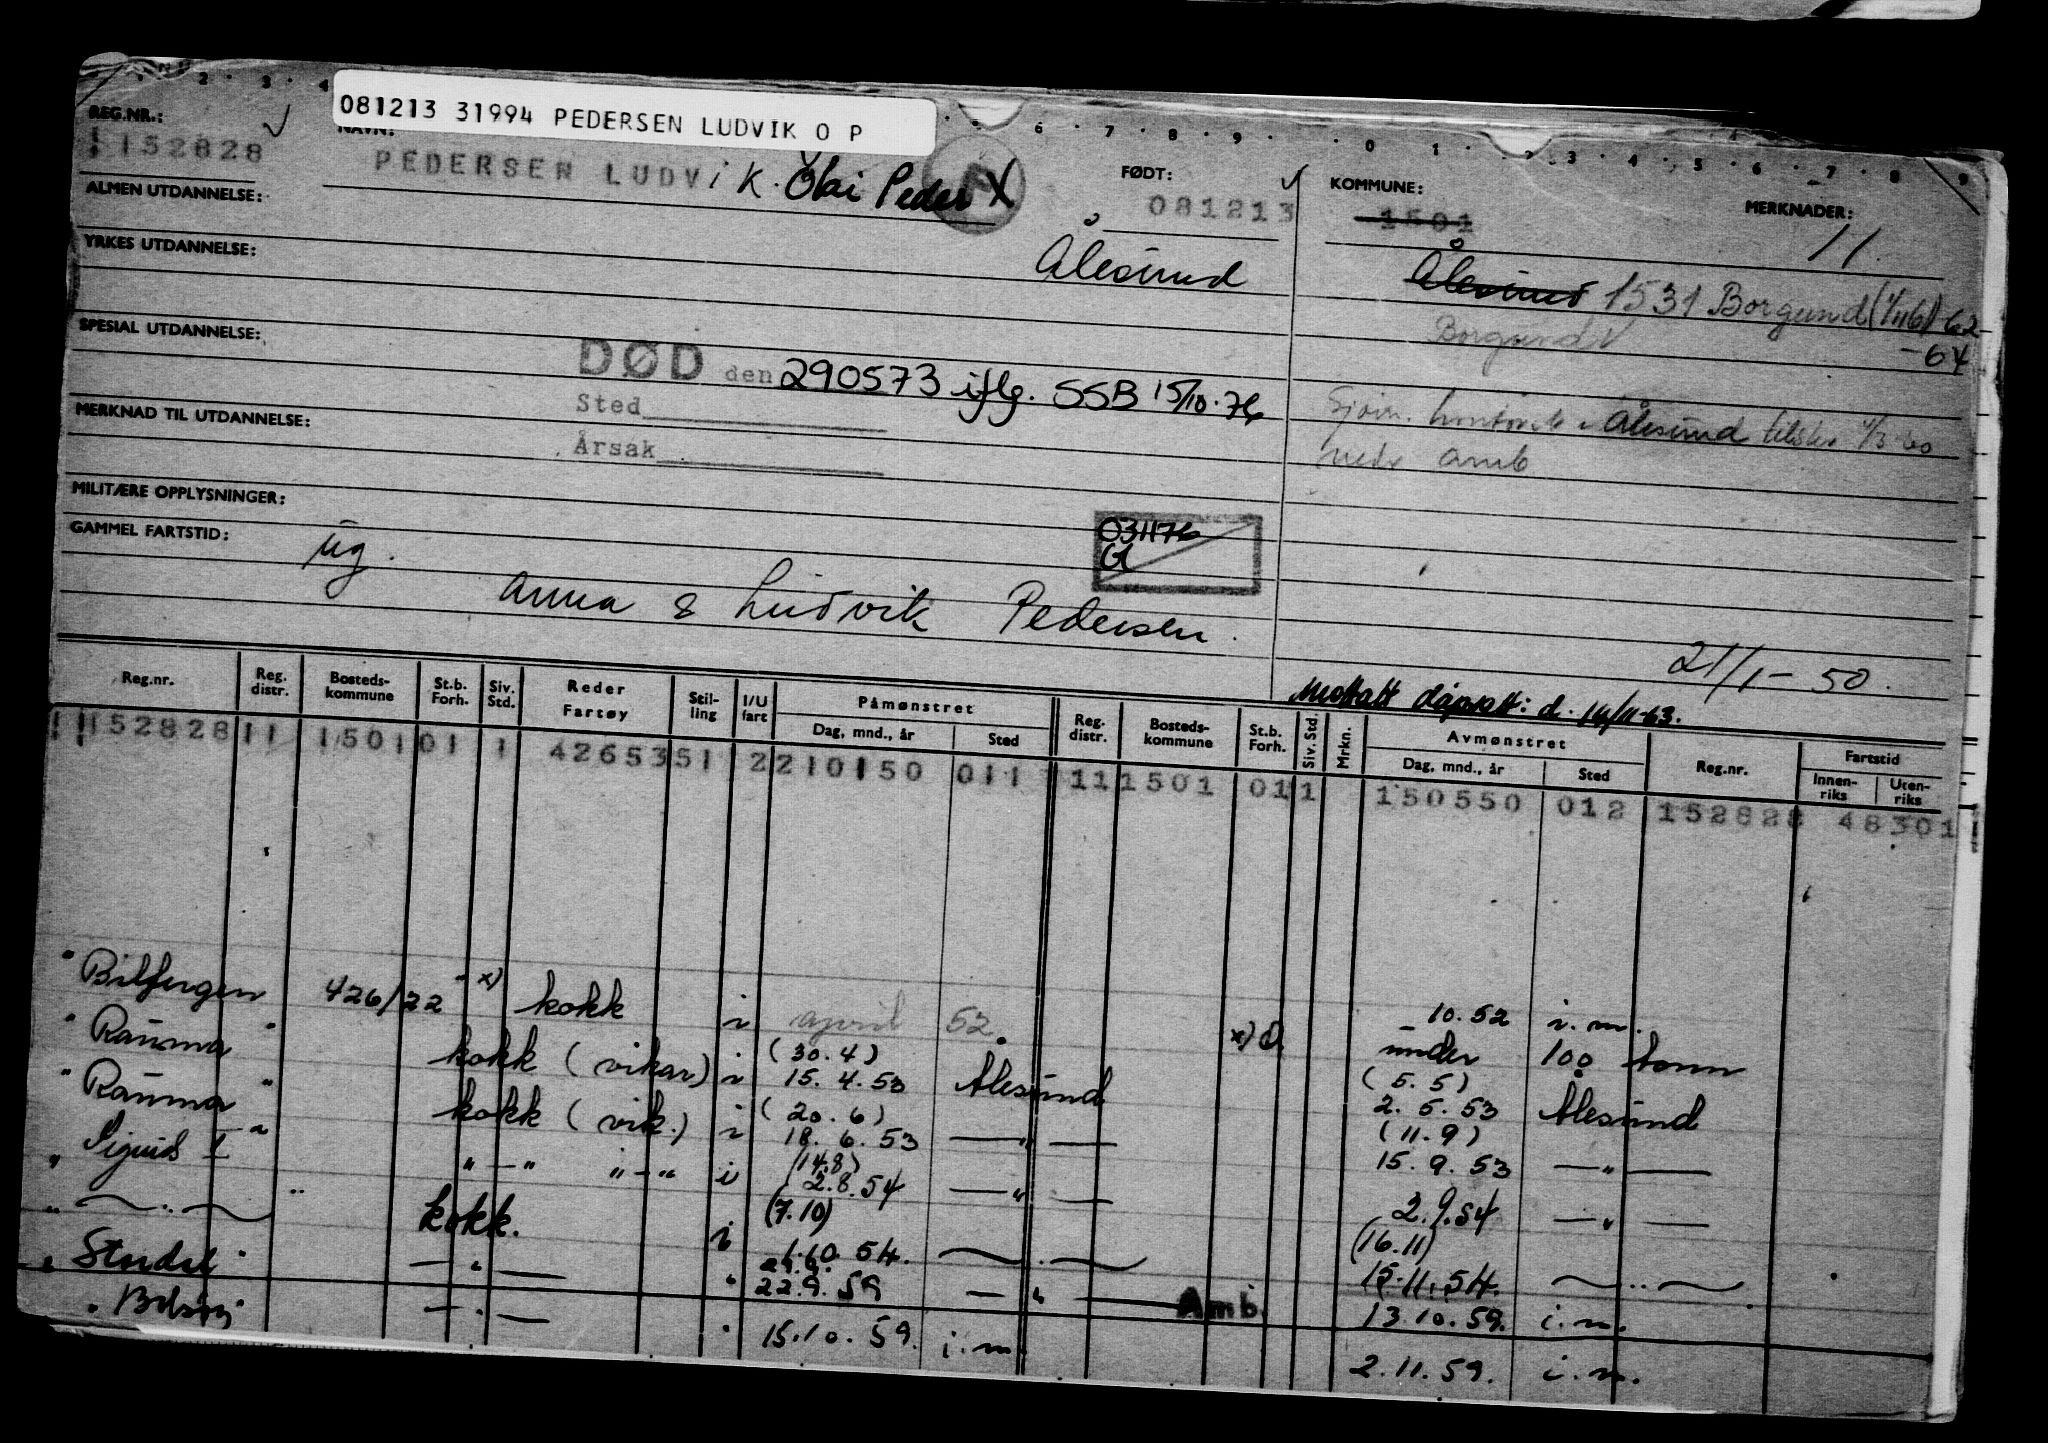 081213 31994 PEDERSEN LUDVIK O P
REG.NR.: NAVN: FØDT: KOMMUNE: MERKNADER:
152828 PEDERSEN LUDVIK. Olai Peder X 081213 1501 11
ALMEN UTDANNELSE:
YRKES UTDANNELSE: Ålesund Ålesund 1531 Borgund (1/1 16) 62
Borgund -64
SPESIAL UTDANNELSE:
DØD den 290573 iflg. SSB 15/10.76
Sted
MERKNAD TIL UTDANNELSE: Ålesund 1/3-60
Årsak amb
MILITÆRE OPPLYSNINGER:
031176
G
GAMMEL FARTSTID: ug.
Anna & Ludvik Pedersen.
21/1-50.
Mottatt dåpsatt: d. 14/11-63.
Reg.nr. Reg. distr. Bosteds-kommune St.b. Forh. Siv. Std. Reder Fartøy Stil-ling I/U fart Påmønstret Dag, mnd., år Sted Reg. distr. Bosteds-kommune St.b. Forh. Siv. Std. Mrkn. Avmønstret Dag, mnd., år Sted Reg.nr. Fartstid Innen-riks Uten-riks
152828 11 1501 01 1 42653 51 2 210150 011 11 1501 01 1 150550 012 152828 48301
" Bilfergen 426/22 x) kokk i april 52. 10.52 i.m.
x) under 100 tonn
" Rauma " kokk (vikar) i (30.4) 15.4.53 Ålesund (5.5) 2.5.53 Ålesund
" Rauma " kokk (vik.) i (20.6) 18.6.53 —"— (11.9) 15.9.53 —"—
" Sigurd I " "—" "—" i (14.8) 2.8.54 —"— 2.9.54 —"—
" —"— " kokk. i (7.10) 1.10.54. —"— (16.11) 15.11.54. —"—
" " —"— " 22.9.59 —"— Amb. 13.10.59. i.m.
" " —"— " 15.10.59. i.m. 2.11.59. i.m.